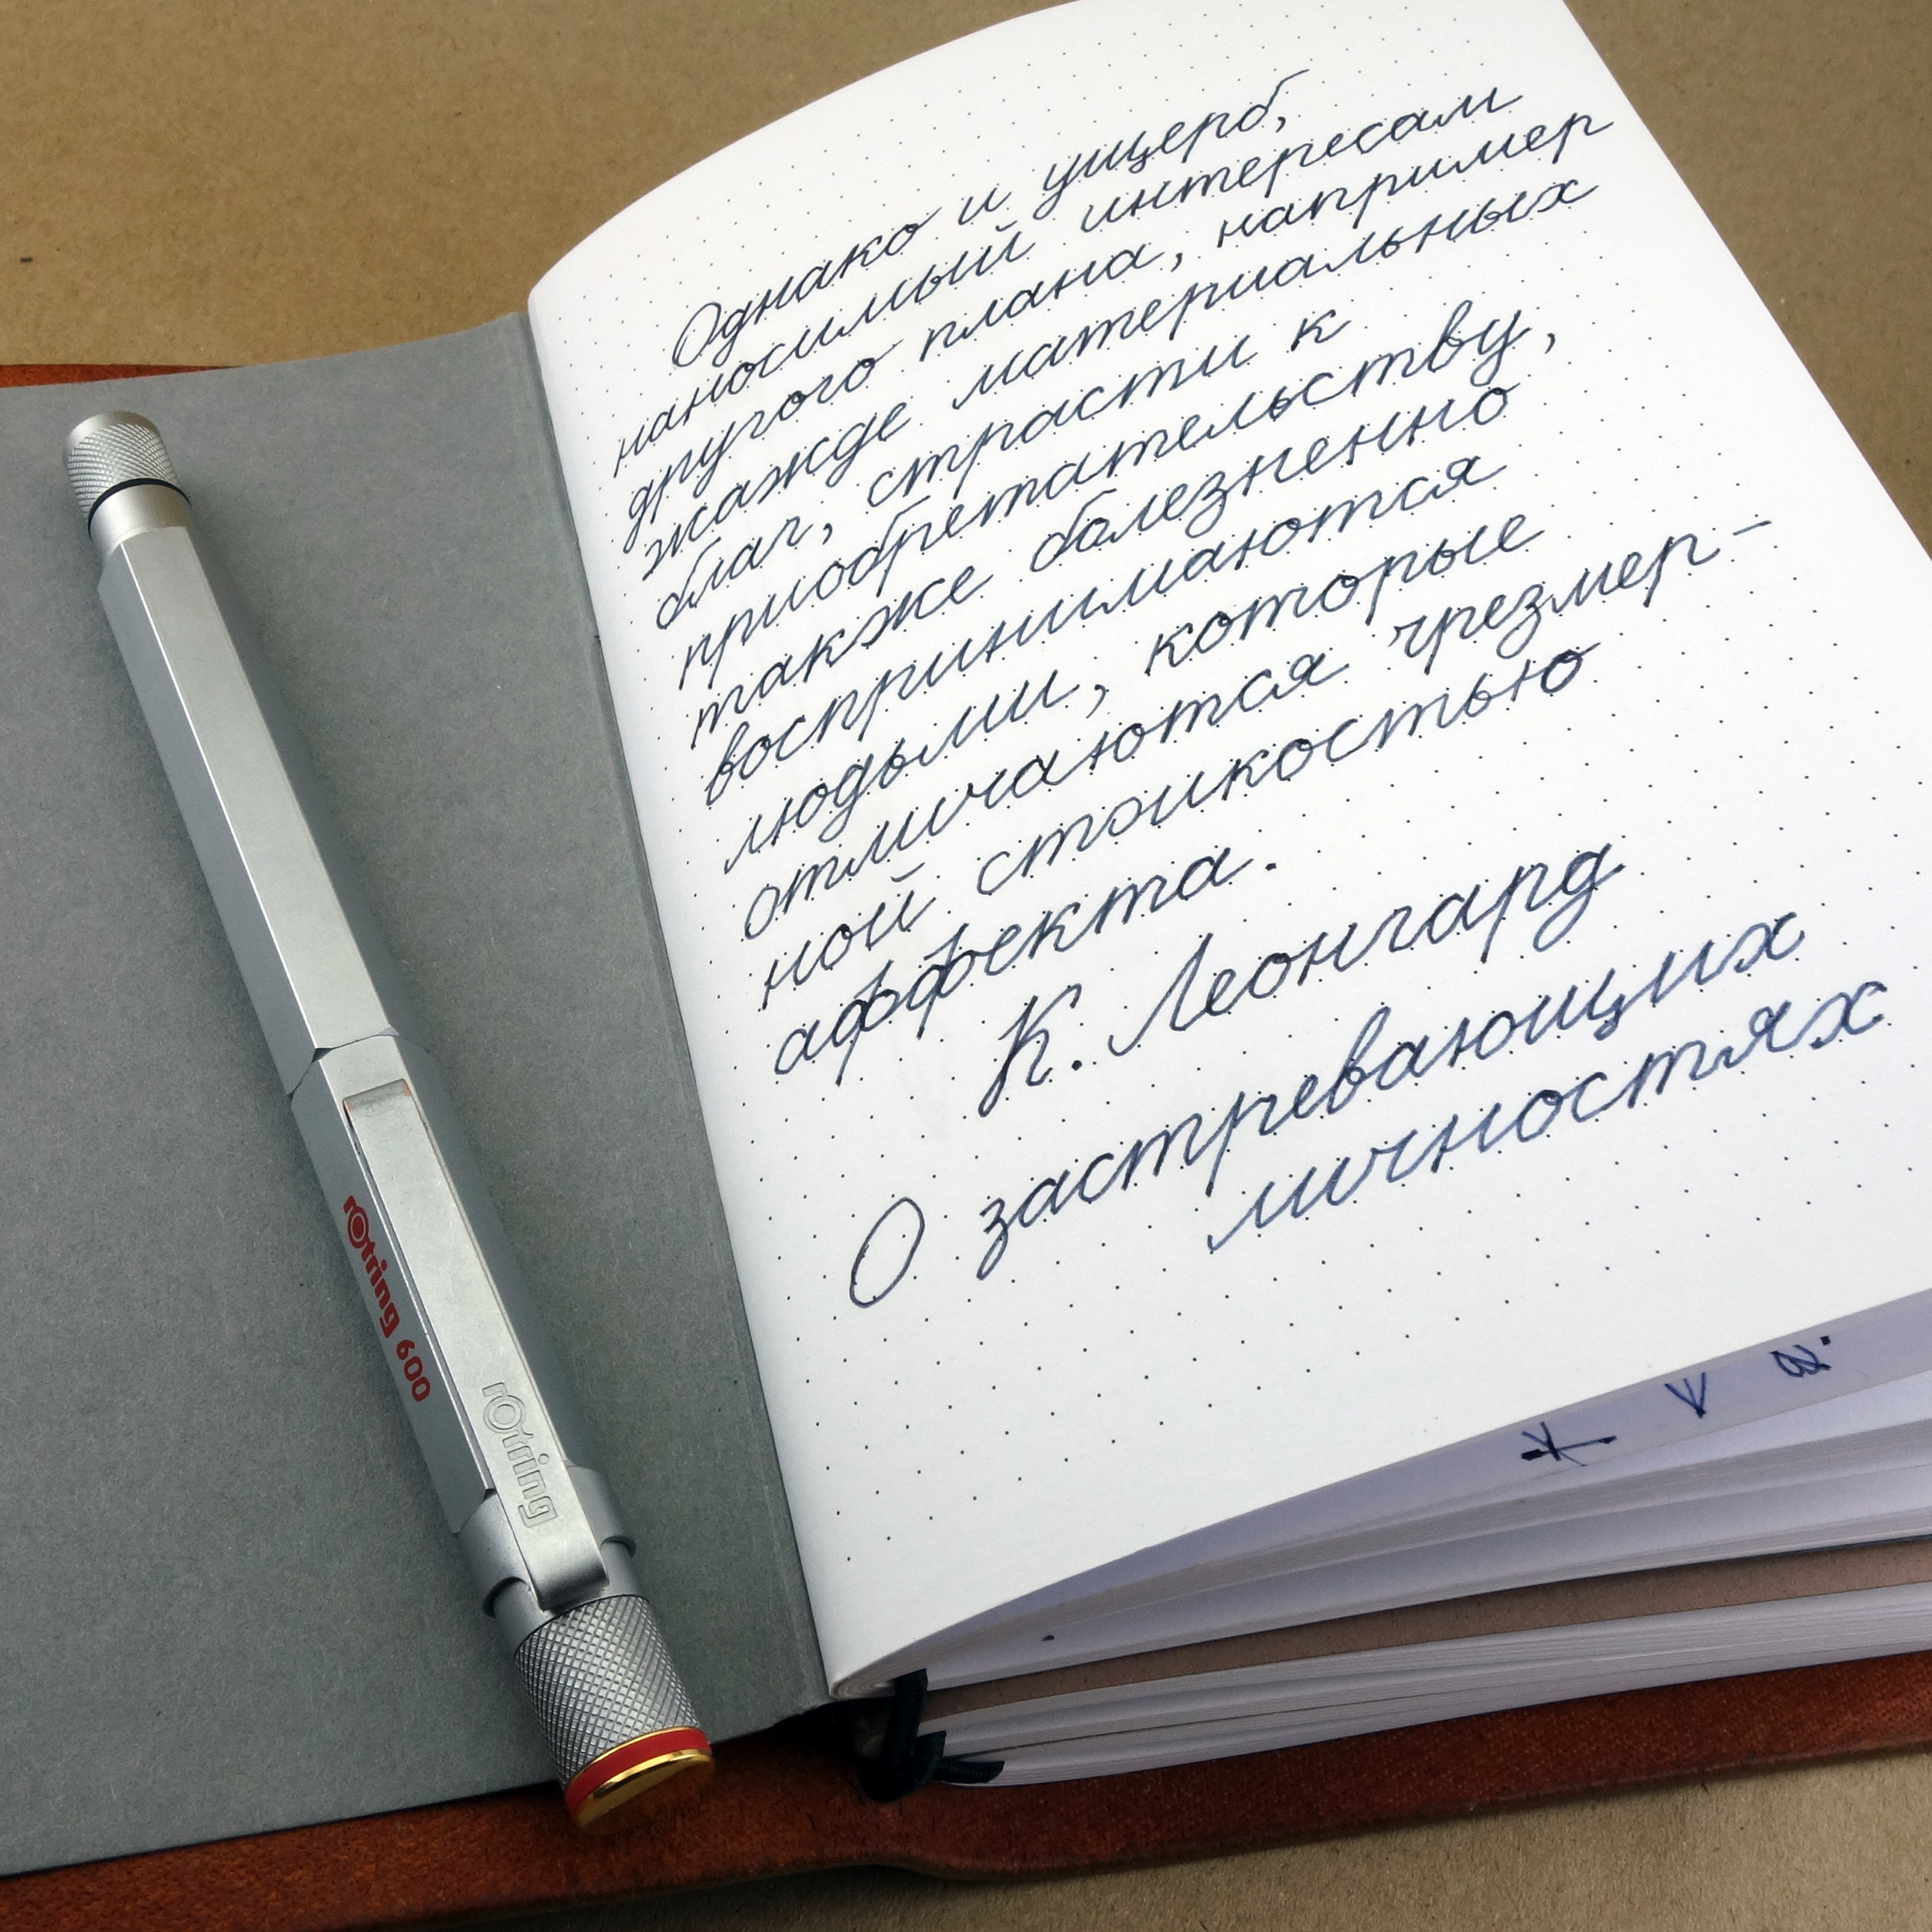 Однако и ущерб,
наносимый интересам
другого плана, например
жажде материальных
благ, страсти к
приобретательству,
также болезненно
воспринимаются
людьми, которые
отличаются чрезмер-
ной стойкостью
аффекта.
К. Леонгард
О застревающих
личностях
rOtring 600
rOtring